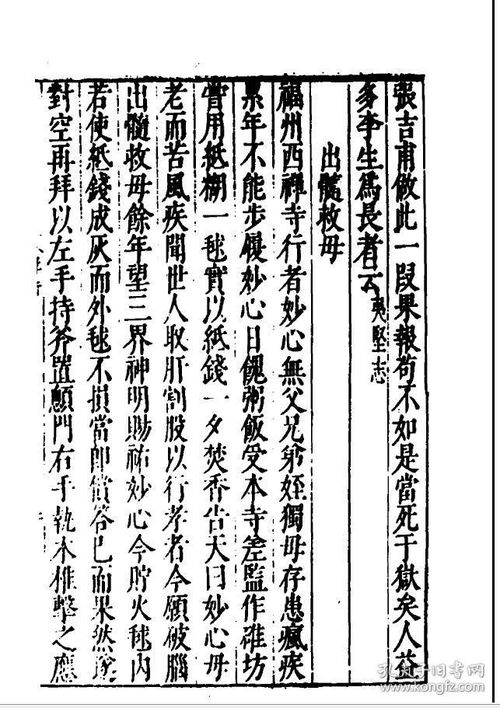 張吉甫做此一段果報苟不如是當死于獄矣人益
多李生爲長者云夷堅志
出髓救母
福州西禪寺行者妙心無父兄弟姪獨母存患瘋疾
累年不能步履妙心日餽粥飯受本寺差監作碓坊
嘗用紙糊一毬實以紙錢一夕焚香告天曰妙心母
老而苦風疾聞世人取肝割股以行孝者今願破腦
出髓救母餘年望三界神明賜祐妙心今貯火毬內
若使紙錢成灰而外毬不損當卽償答已而果然遂
對空再拜以左手持斧置顖門右手執木椎擊之應
孔夫子旧书网
www.kongfz.com